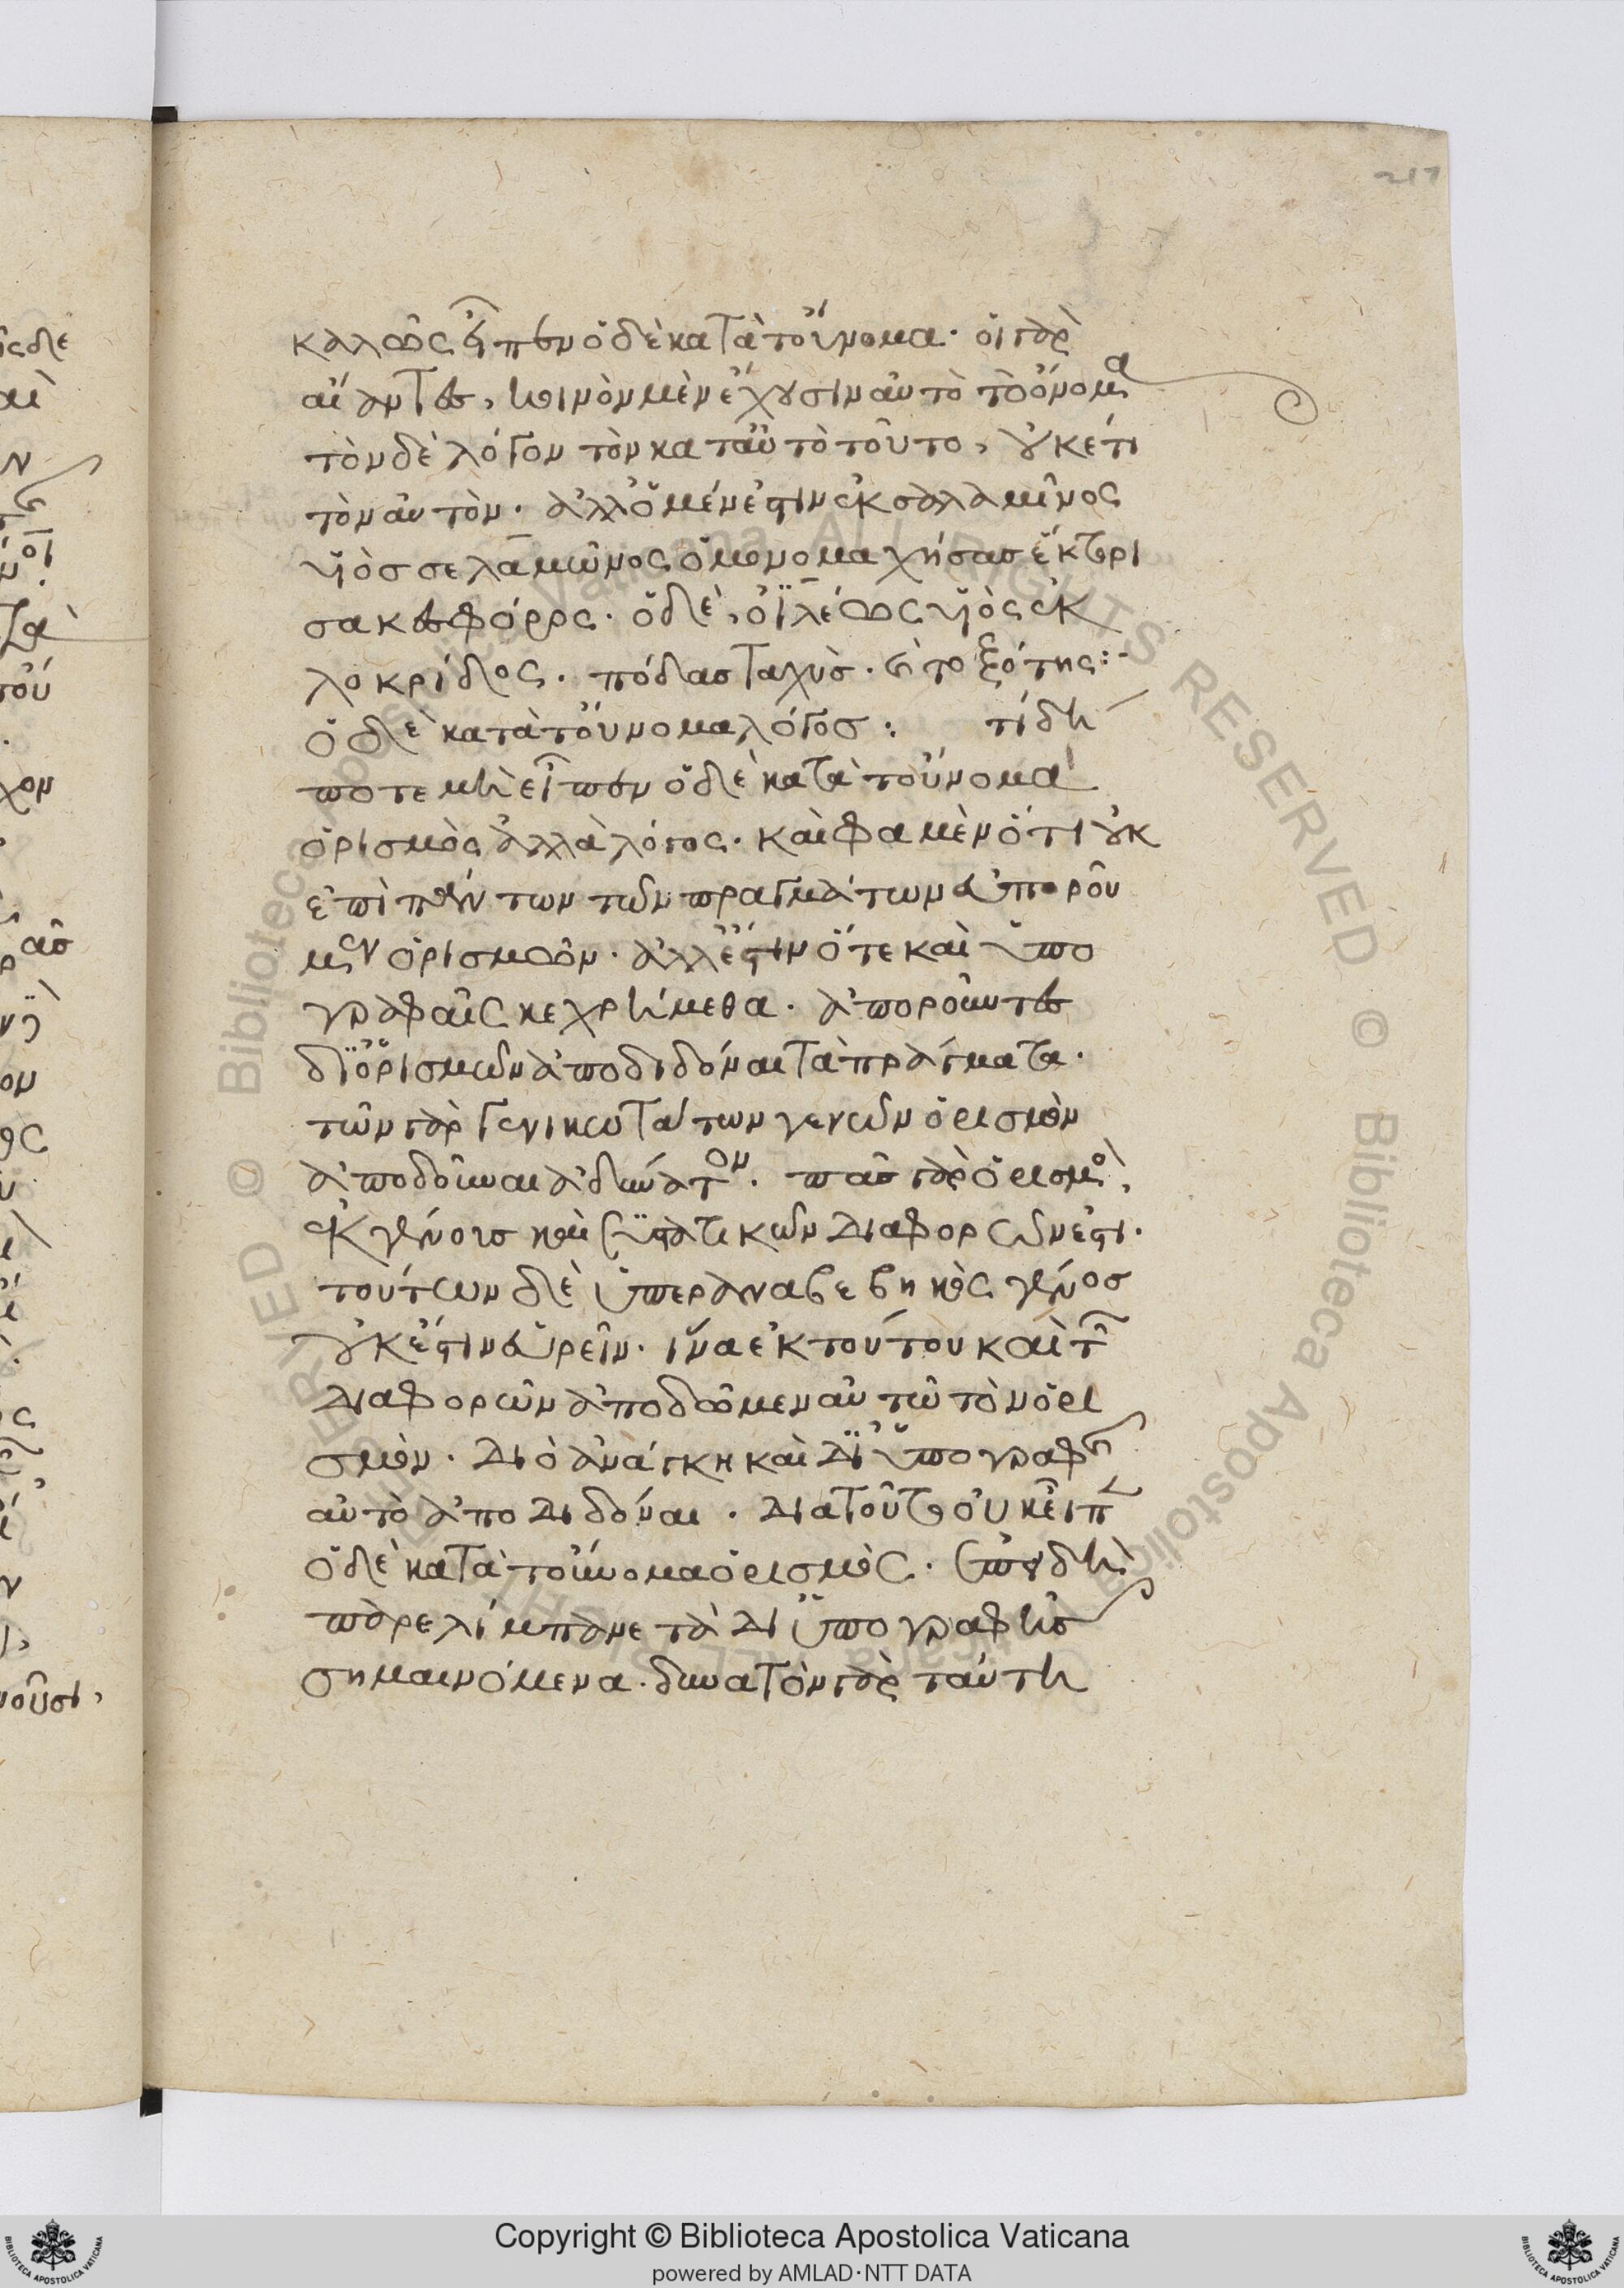 217
καλῶς εἶπεν ὁ δὲ κατὰ τοὔνομα· οἱ γὰρ
αἴαντες, κοινὸν μὲν ἔχουσιν αὐτὸ τὸ ὄνομα
τὸν δὲ λόγον τὸν κατ' αὐτὸ τοῦτο, οὐκέτι
τὸν αὐτόν· ἀλλ' ὁ μέν ἐστιν ἐκ σαλαμῖνος
υἱὸς τελαμῶνος ὁ μονομαχήσας ἕκτορι
σακεσφόρος· ὁ δὲ, ὀϊλέως υἱὸς ἐκ
λοκρίδος· πόδας ταχύς· ἢ τοξότης:-
ὁ δὲ κατὰ τοὔνομα λόγος: τί δή
ποτε μὴ εἶπεν ὁ δὲ κατὰ τοὔνομα
ὁρισμὸς ἀλλὰ λόγος· καὶ φαμὲν ὅτι οὐκ
ἐπὶ πάντων τῶν πραγμάτων εὐποροῦ
μεν ὁρισμῶν· ἀλλ' ἔστιν ὅτε καὶ ὑπο
γραφαῖς κεχρήμεθα· ἀποροῦντες
δι' ὁρισμῶν ἀποδιδόναι τὰ πράγματα·
τῶν γὰρ γενικωτάτων γενῶν ὁρισμὸν
ἀποδοῦναι ἀδύνατον· πᾶς γὰρ ὁρισμὸς,
ἐκ γένους καὶ συστατικῶν διαφορῶν ἐστι·
τούτων δὲ ὑπεραναβεβηκὸς γένος
οὐκ ἔστιν εὑρεῖν· ἵνα ἐκ τούτου καὶ τῶν
διαφορῶν ἀποδῶμεν αὐτῶ τὸν ὁρι
σμόν· διὸ ἀνάγκη καὶ δι' ὑπογραφῆς
αὐτὸ ἀποδιδόναι· διὰ τοῦτο οὐκ εἶπεν
ὁ δὲ κατὰ τοὔνομα ὁρισμός· ἐπειδὴ
παρελίμπανε τὰ δι' ὑπογραφῆς
σημαινόμενα· δυνατὸν γὰρ ταύτη
Copyright © Biblioteca Apostolica Vaticana
powered by AMLAD·NTT DATA